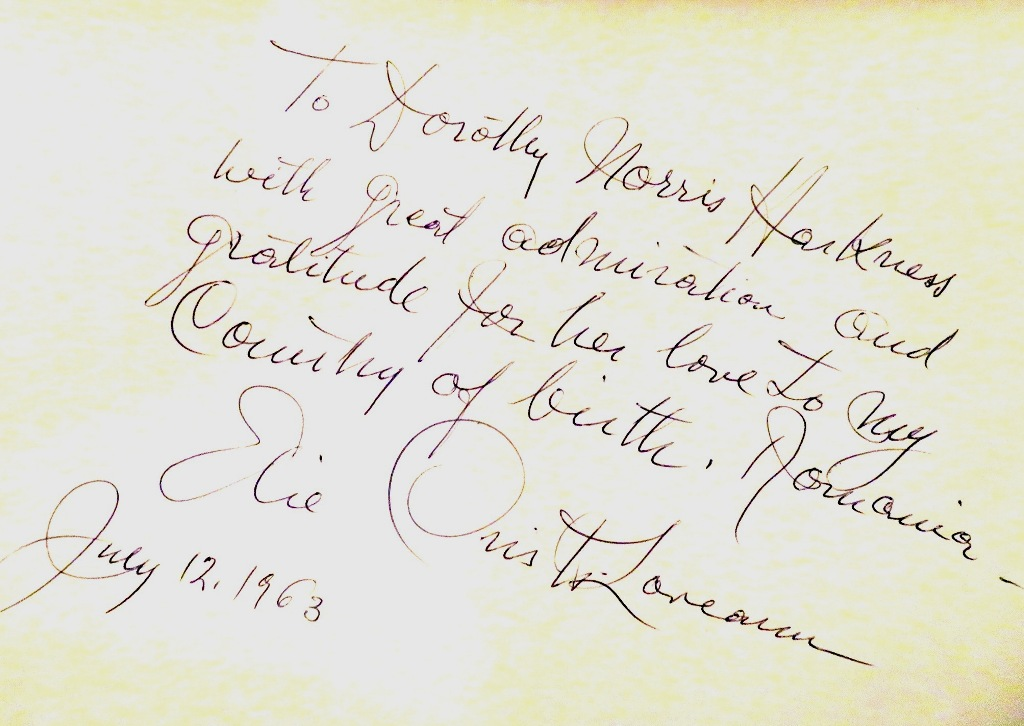 To Dorothy Norris Harkness
with great admiration and
gratitude for her love to my
Country of birth. Romania -
Elie Cristo Loveanu
July 12. 1963